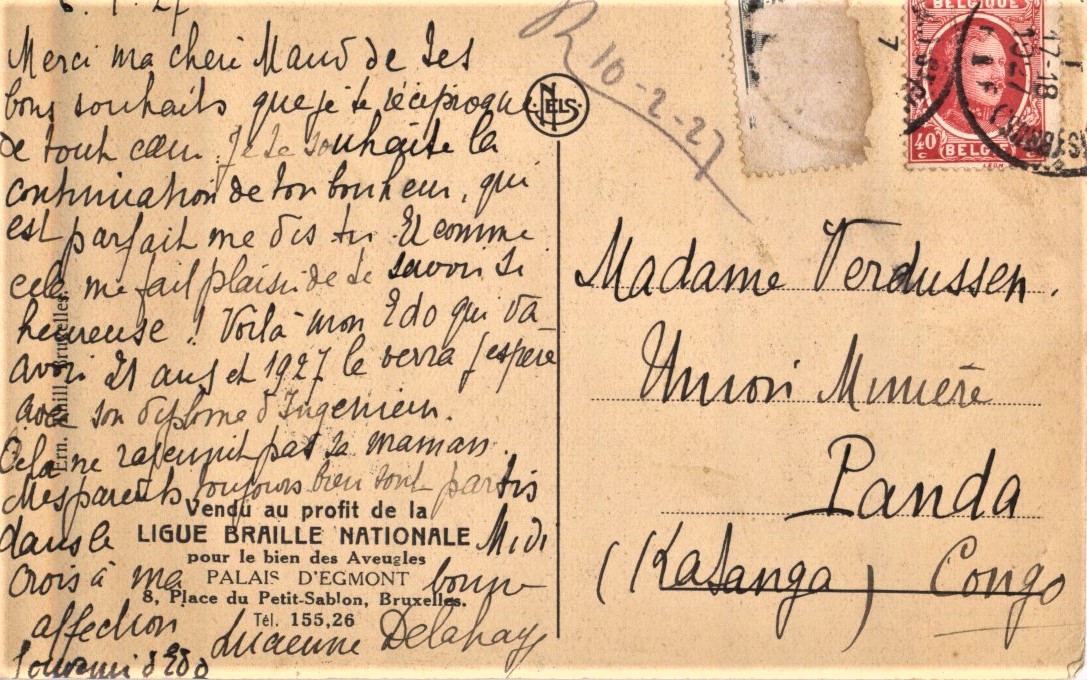 6. 1. 27
Merci ma cheri Maud de tes
bons souhaits que je te réciproque
de tout cœur. Je te souhaite la
continuation de ton bonheur, qui
est parfait me dis tu. Et comme
cela me fait plaisir de te savoir si
heureuse ! Voilà mon Edo qui va
avoir 21 ans et 1927 le verra j'espère
avec son diplome d'Ingenieur.
Cela ne rajeunit pas sa maman.
Mes parents toujours bien sont partis
dans le Midi
Crois à ma bonne
affection
Lucienne Delahaye
Souvenir d'Edo
Vendu au profit de la
LIGUE BRAILLE NATIONALE
pour le bien des Aveugles
PALAIS D'EGMONT
8, Place du Petit-Sablon, Bruxelles.
Tél. 155,26
(Ern. Thill, Bruxelles.
NELS
R 10-2-27
BELGIQUE
40c
(BELGIË)
17-18
Madame Verdussen.
Union Minière
Panda
(Katanga) Congo